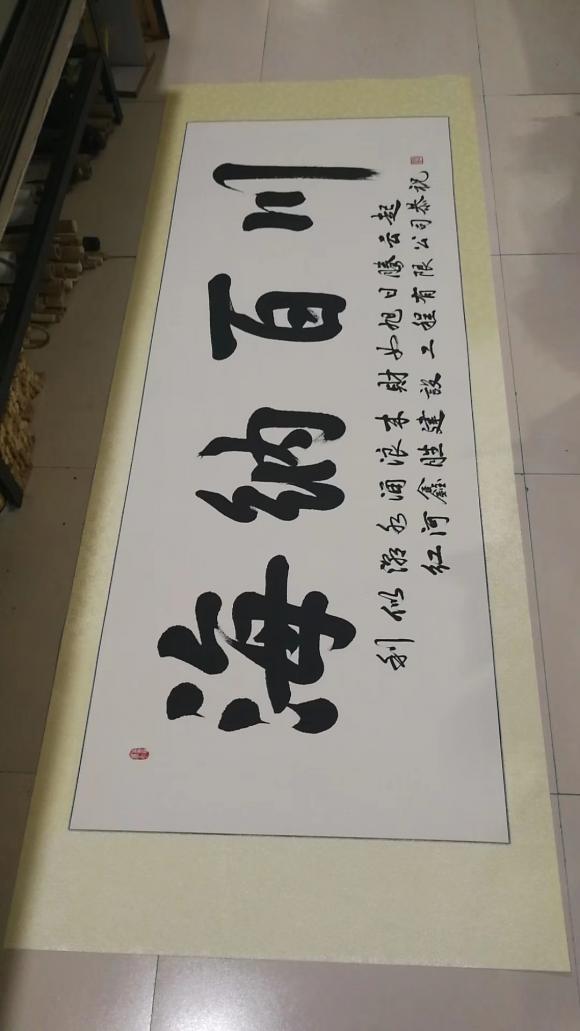 海纳百川
利似潮水涌浪来財如旭日腾云起
红河鑫胜建設工程有限公司恭祝